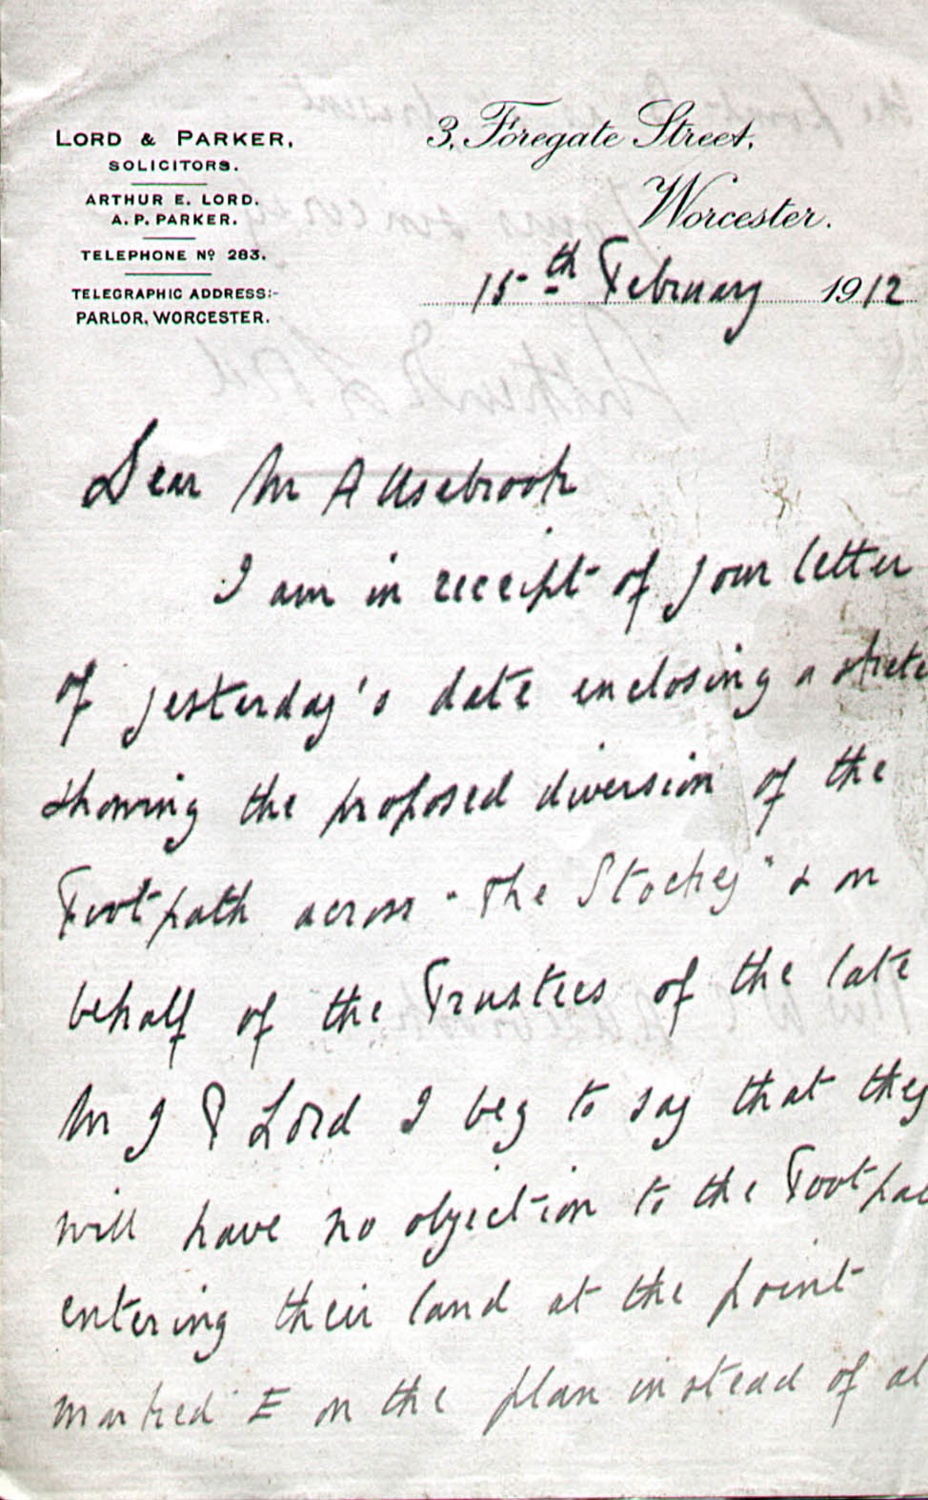 LORD & PARKER,
SOLICITORS.
ARTHUR E. LORD.
A. P. PARKER.
TELEPHONE Nº 283.
TELEGRAPHIC ADDRESS:-
PARLOR, WORCESTER.
3, Foregate Street,
Worcester.
15th February 1912
Dear Mr Allsebrook
I am in receipt of your letter
of yesterday's date enclosing a
showing the proposed diversion of the
Footpath across "The Stockey" & on
behalf of the Trustees of the late
Mr J P Lord I beg to say that they
will have no objection to the Footpa
entering their land at the point
marked E on the plan instead of at